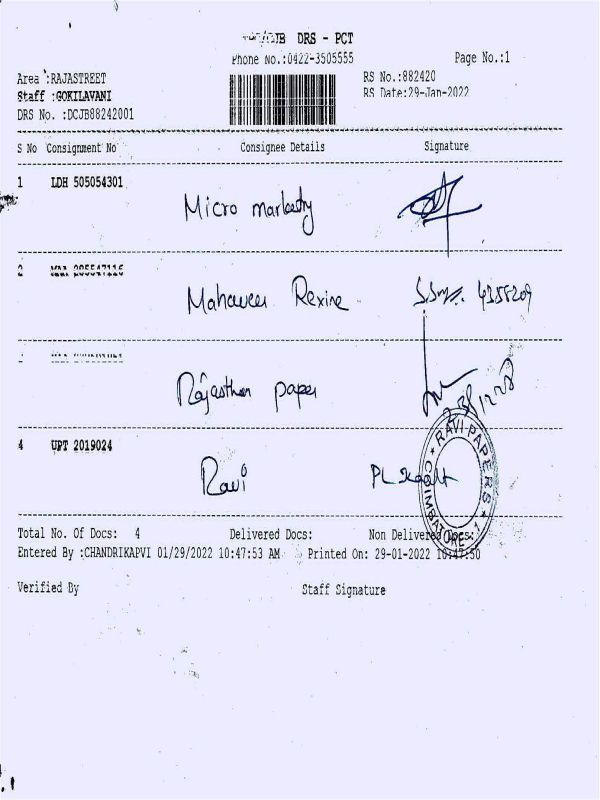 DRS - PCT
Phone No.:0422-3505555 Page No.:1
Area :RAJASTREET RS No.:882420
Staff :GOKILAVANI RS Date:29-Jan-2022
DRS No. :DCJB88242001
S No Consignment No Consignee Details Signature
1 LDH 505054301
Micro marketry
2
Mahaveer Rexine 4355209
Rajasthan paper
RAVI PAPERS
4 UPT 2019024
Ravi
COIMBATORE - 1
Total No. Of Docs: 4 Delivered Docs: Non Delivered Docs:
Entered By :CHANDRIKAPVI 01/29/2022 10:47:53 AM Printed On: 29-01-2022 10:47:50
Verified By Staff Signature